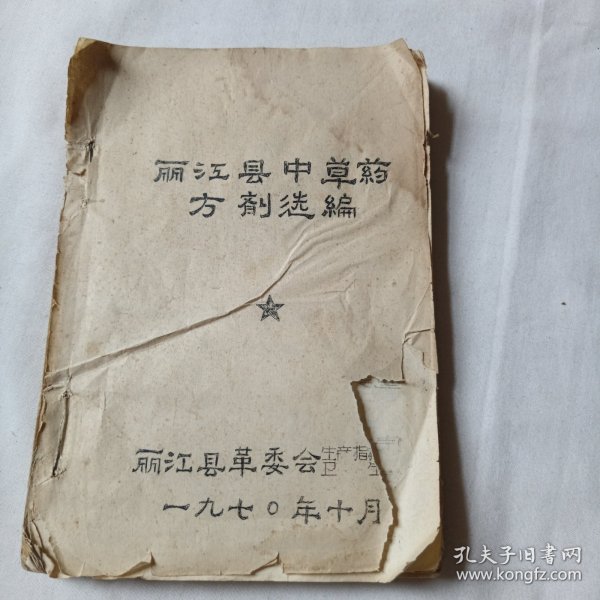 丽江县中草药
方剂选编
丽江县革委会生产指
卫生
一九七〇年十月
孔夫子旧书网
www.kongfz.com